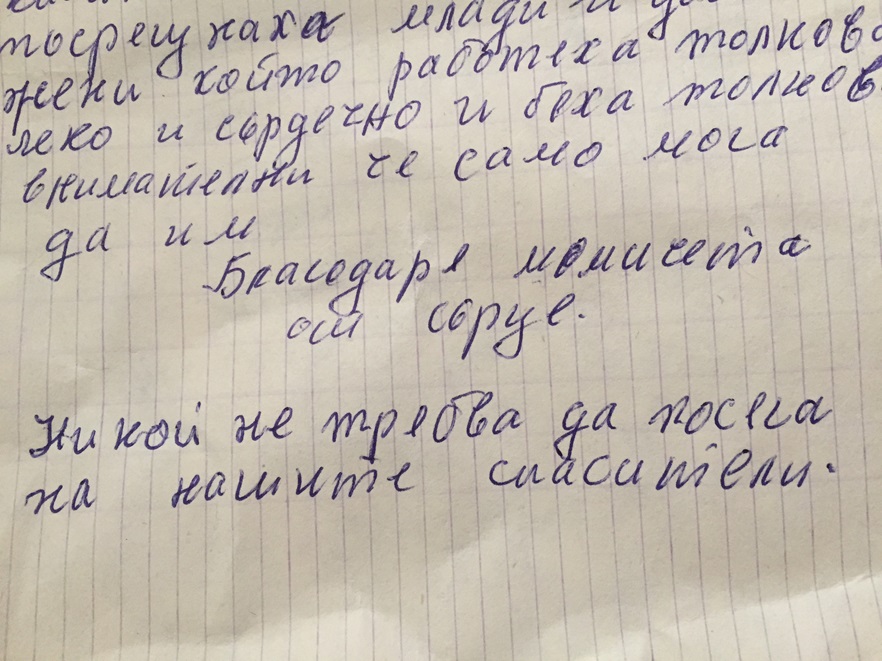 посрещнаха млади и
жени който работеха толкова
леко и сърдечно и беха толков
внимателни че само мога
да им
Благодаря момичета
от сърце.
Никой не требва да посега
на нашите спасители.